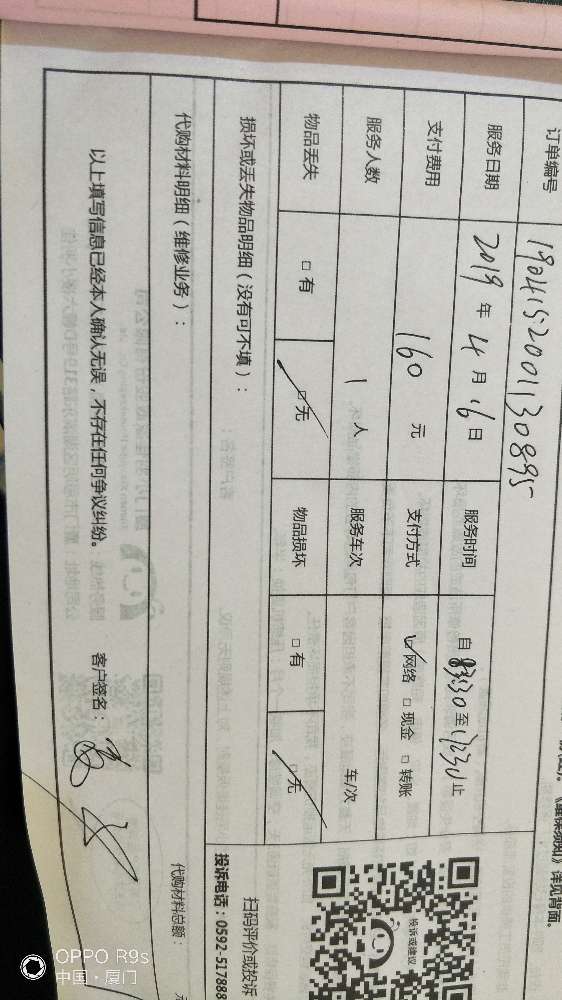 《维保须知》详见背面。
订单编号 190415200113089S
服务日期 2019年4月16日 服务时间 自8:30至12:30止
支付费用 160元 支付方式 网络 □ 现金 □ 转账
服务人数 1人 服务车次 车/次
物品丢失 □ 有 □ 无 物品损坏 □ 有 □ 无
损坏或丢失物品明细（没有可不填）：
代购材料明细（维修业务）：
代购材料总额：
以上填写信息已经本人确认无误，不存在任何争议纠纷。 客户签名：
投诉或建议
扫码评价或投诉
投诉电话：0592-517888
OPPO R9s
中国·厦门